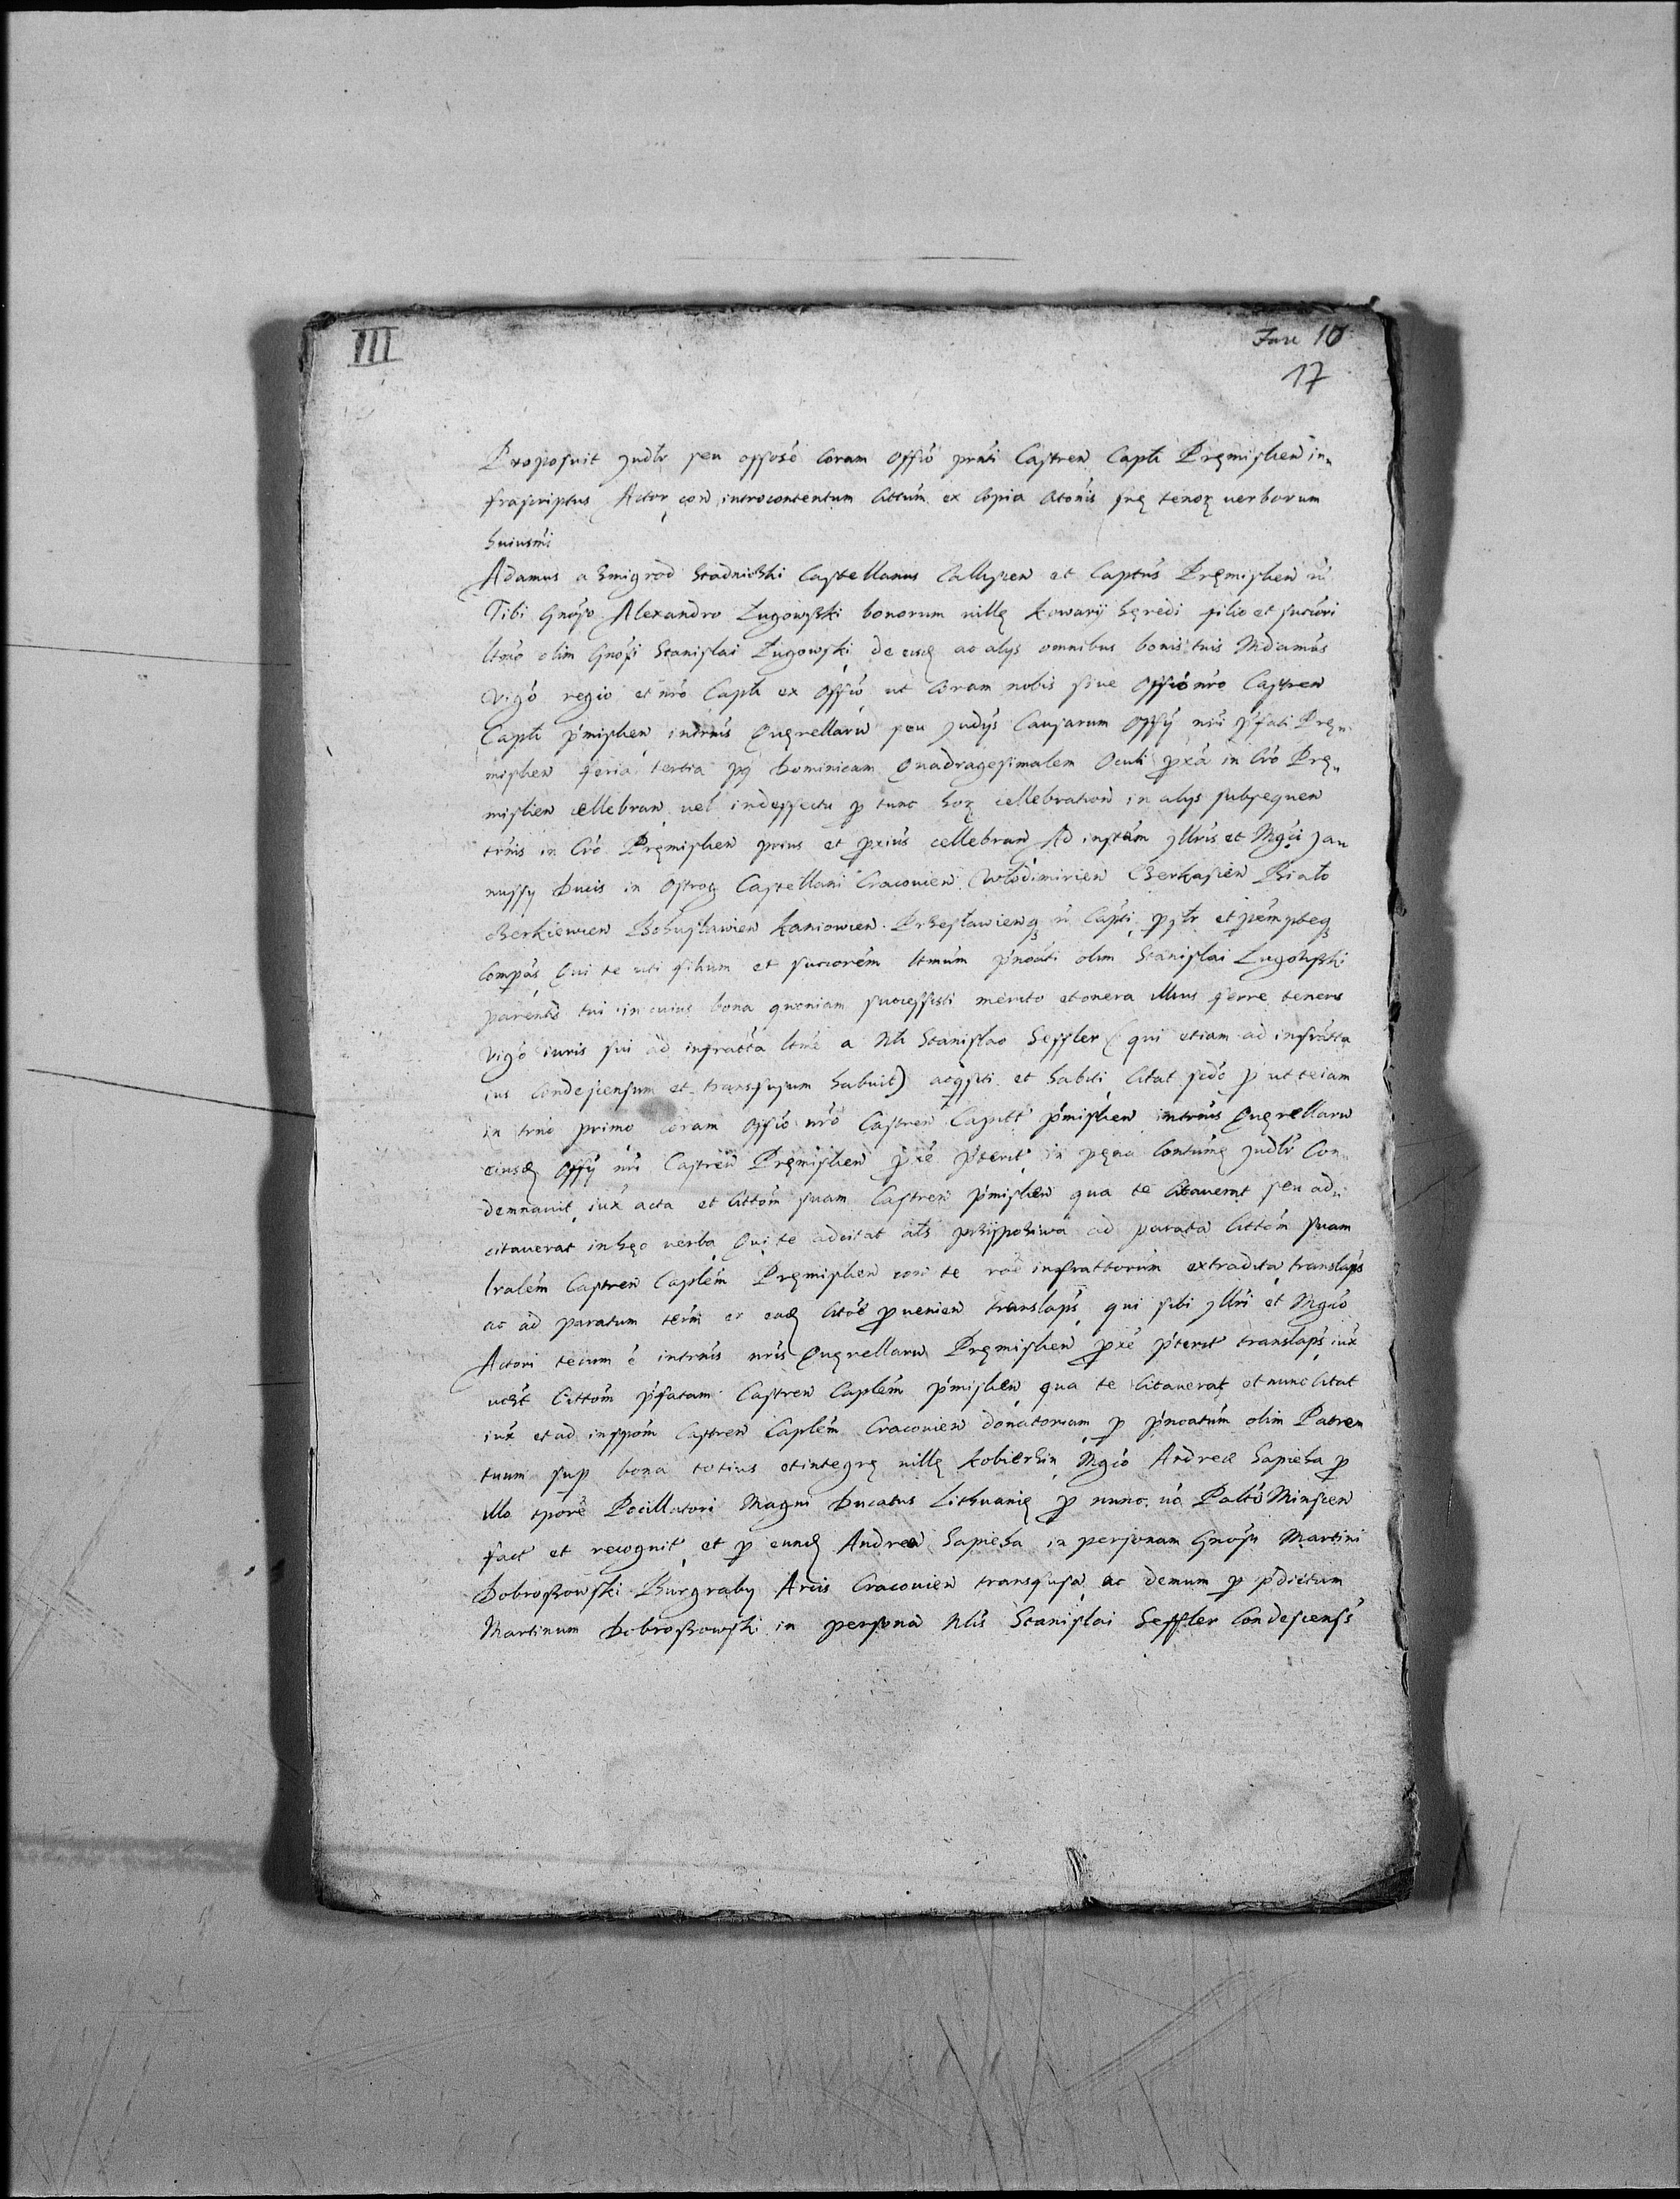 III
Fasc 10
17
Proposuit Judłr seu offose Coram Offió prñti Castren Captł Pręmislien in„
frascriptus Actor con introcontentum Citatum ex Copia Citonis suę tenoꝝ verborum
huiusmi
Adamus a Zmigrod Stadniczki Castellanus Callissien et Captus Pręmislien
Tibi Gnoso Alexandro Ługowski bonorum villę Kowarÿ hęredi filio et succóri
ltmo olim Gnosi Stanislai Ługowski de eisdę ac alÿs omnibus bonis tuis Mdamus
Vigó regio et nró Captł ex Offió ut Coram nobis siue Offió nró Castren
Captł pmislien intrnis Quęrellaru seu Judÿs Causarum Offÿ nri pfati Pręn
mislien feria tertia pꝫ Dominicam Quadragesimalem Oculi pxa in Cró Pręn
mislien cellebran vel indeffectu p tunc hoꝝ cellebration in alÿs subsequen
trnis in Cró Pręmislien prius et pxius cellebran Ad instam Jllris et Mgci Jan
nussÿ Ducis in Ostrog Castellani Cracouien Włodimirien Czerkasien Biało
Czerkiewien Bohusławien Kaniowien Przesławienqꝫ Capti pstr et pemptieqꝫ
Compas Qui te uti filium et succorem ltmum pnoati olim Stanislai Ługowski
parentis tui in cuius bona quoniam successisti merito et onera illius ferre teneris
Vigó iuris sui ad infratta ltme a Nłi Stanislao Heffler (qui etiam ad infratta
ius Condescensum et transfusum habuit) acqsiti et habiti Citat sedó p ut te iam
in trno primo coram Offió nró Castren Captł pmislien intrnis Quęrellaru
eiusdę Offÿ nri Castren Pręmislien pxe pterit in pęna Contumę Judłr Con„
demnauit iux acta et Citom suam Castren pmislien qua te Citauerat seu ad„
citauerat in hęc verba Qui te adcitat als przÿpozÿwa ad parata Cittom suam
lralem Castren Captem Pręmislien con te rae infrattorum extradita translaps
ac ad paratum term ex eadę Citoe puenien translaps qui sibi Jllri et Mgco
Actori tecum e intrnis nris Quęrellaru Pręmislien pxe pterit translaps iux
Cittom pfatam Castren Captem pmislien qua te Citauerat et nunc Citat
iux et ad insspom Castren Captem Cracouien donatoriam p pnoatum olim Patrem
tuum sup bona totius et integrę villę Kobierzin Mgco Andreæ Sapieha p
illo tpore Pocillatori Magni Ducatus Lithuanię p nunc vó Palto Minscen
fact et recognit et p eundę Andrea Sapieha in personam Gnosi Martini
Dobroszowski Burgrabÿ Arcis Cracouien transfusa ac demum p pdictum
Martinum Dobroszowski in persona Nłis Stanislai Heffler Condescens